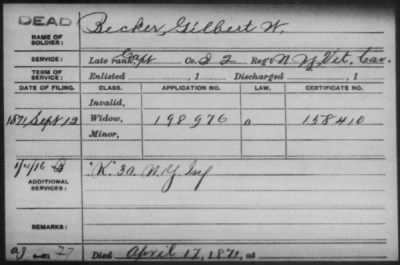 DEAD
NAME OF SOLDIER: Becker, Gilbert W.
SERVICE: Late rank, Capt Co. I 2 Reg't N Y Vet. Cav.
TERM OF SERVICE: Enlisted , 1 Discharged , 1
DATE OF FILING. CLASS. APPLICATION NO. LAW. CERTIFICATE NO.
Invalid,
1871, Sept. 12 Widow, 198976 0 158410
Minor,
ADDITIONAL SERVICES: K. 30 N.Y. Inf
REMARKS:
Died April 17, 1871, at